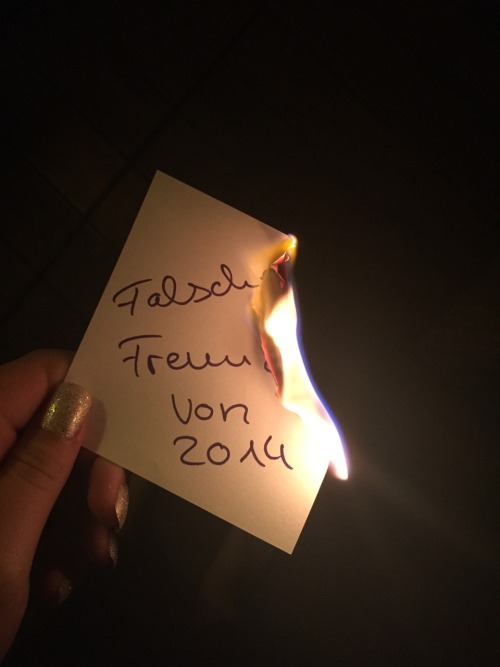 Falsch
Freun
von
2014